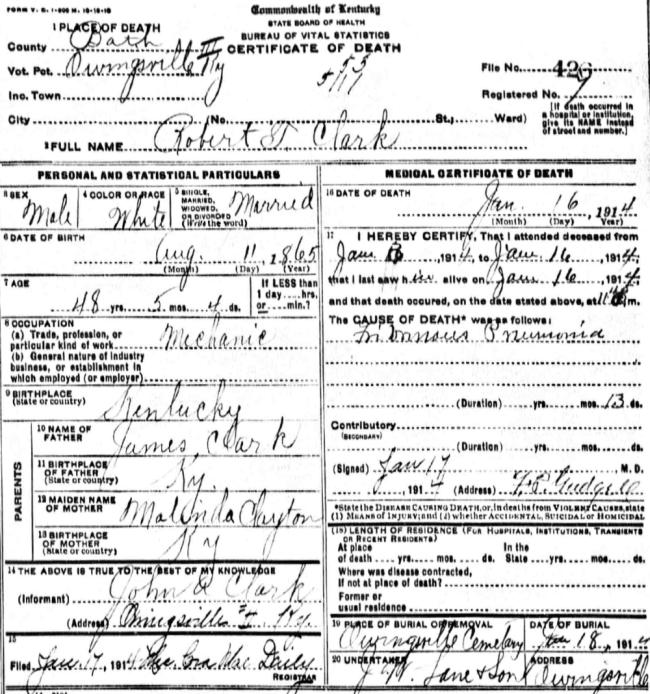 FORM V. S. 1-200 M. 10-10-10
Commonwealth of Kentucky
STATE BOARD OF HEALTH
BUREAU OF VITAL STATISTICS
CERTIFICATE OF DEATH
1 PLACE OF DEATH
County Bath
Vot. Pct. Owingsville III Ky
Inc. Town
File No. 426
Registered No. 7
City (No. St., Ward)
[If death occurred in a hospital or institution, give its NAME instead of street and number.]
2 FULL NAME Robert T. Clark
PERSONAL AND STATISTICAL PARTICULARS
3 SEX Male
4 COLOR OR RACE White
5 SINGLE, MARRIED, WIDOWED, OR DIVORCED (Write the word) Married
6 DATE OF BIRTH Aug. 11, 1865
(Month) (Day) (Year)
7 AGE 48 yrs. 5 mos. 4 ds.
If LESS than 1 day....hrs. or....min.?
8 OCCUPATION
(a) Trade, profession, or particular kind of work Mechanic
(b) General nature of industry business, or establishment in which employed (or employer)
9 BIRTHPLACE (State or country) Kentucky
PARENTS
10 NAME OF FATHER James Clark
11 BIRTHPLACE OF FATHER (State or country) Ky.
12 MAIDEN NAME OF MOTHER Malinda Clayton
13 BIRTHPLACE OF MOTHER Ky
14 THE ABOVE IS TRUE TO THE BEST OF MY KNOWLEDGE
(Informant) John Clark
(Address) Owingsville Ky.
15
Filed Jan. 17, 1914 Mae Daily
REGISTRAR
MEDICAL CERTIFICATE OF DEATH
16 DATE OF DEATH Jan. 16, 1914
(Month) (Day) (Year)
17 I HEREBY CERTIFY, That I attended deceased from
Jan 1914, to Jan 16, 1914
that I last saw him alive on Jan 16, 1914,
and that death occured, on the date stated above, at m.
The CAUSE OF DEATH* was as follows:
Pneumonia
(Duration) yrs. mos. 13 ds.
Contributory
(SECONDARY)
(Duration) yrs. mos. ds.
(Signed) Jan 17 M. D.
1914 (Address)
*State the DISEASE CAUSING DEATH, or, in deaths from VIOLENT CAUSES, state (1) MEANS OF INJURY; and (2) whether ACCIDENTAL, SUICIDAL or HOMICIDAL
(18) LENGTH OF RESIDENCE (FOR HOSPITALS, INSTITUTIONS, TRANSIENTS OR RECENT RESIDENTS)
At place of death yrs. mos. ds. In the State yrs. mos. ds.
Where was disease contracted, If not at place of death?
Former or usual residence
19 PLACE OF BURIAL OR REMOVAL Owingsville Cemetary
DATE OF BURIAL Jan 18, 1914
20 UNDERTAKER Lane & Son
ADDRESS Owingsville